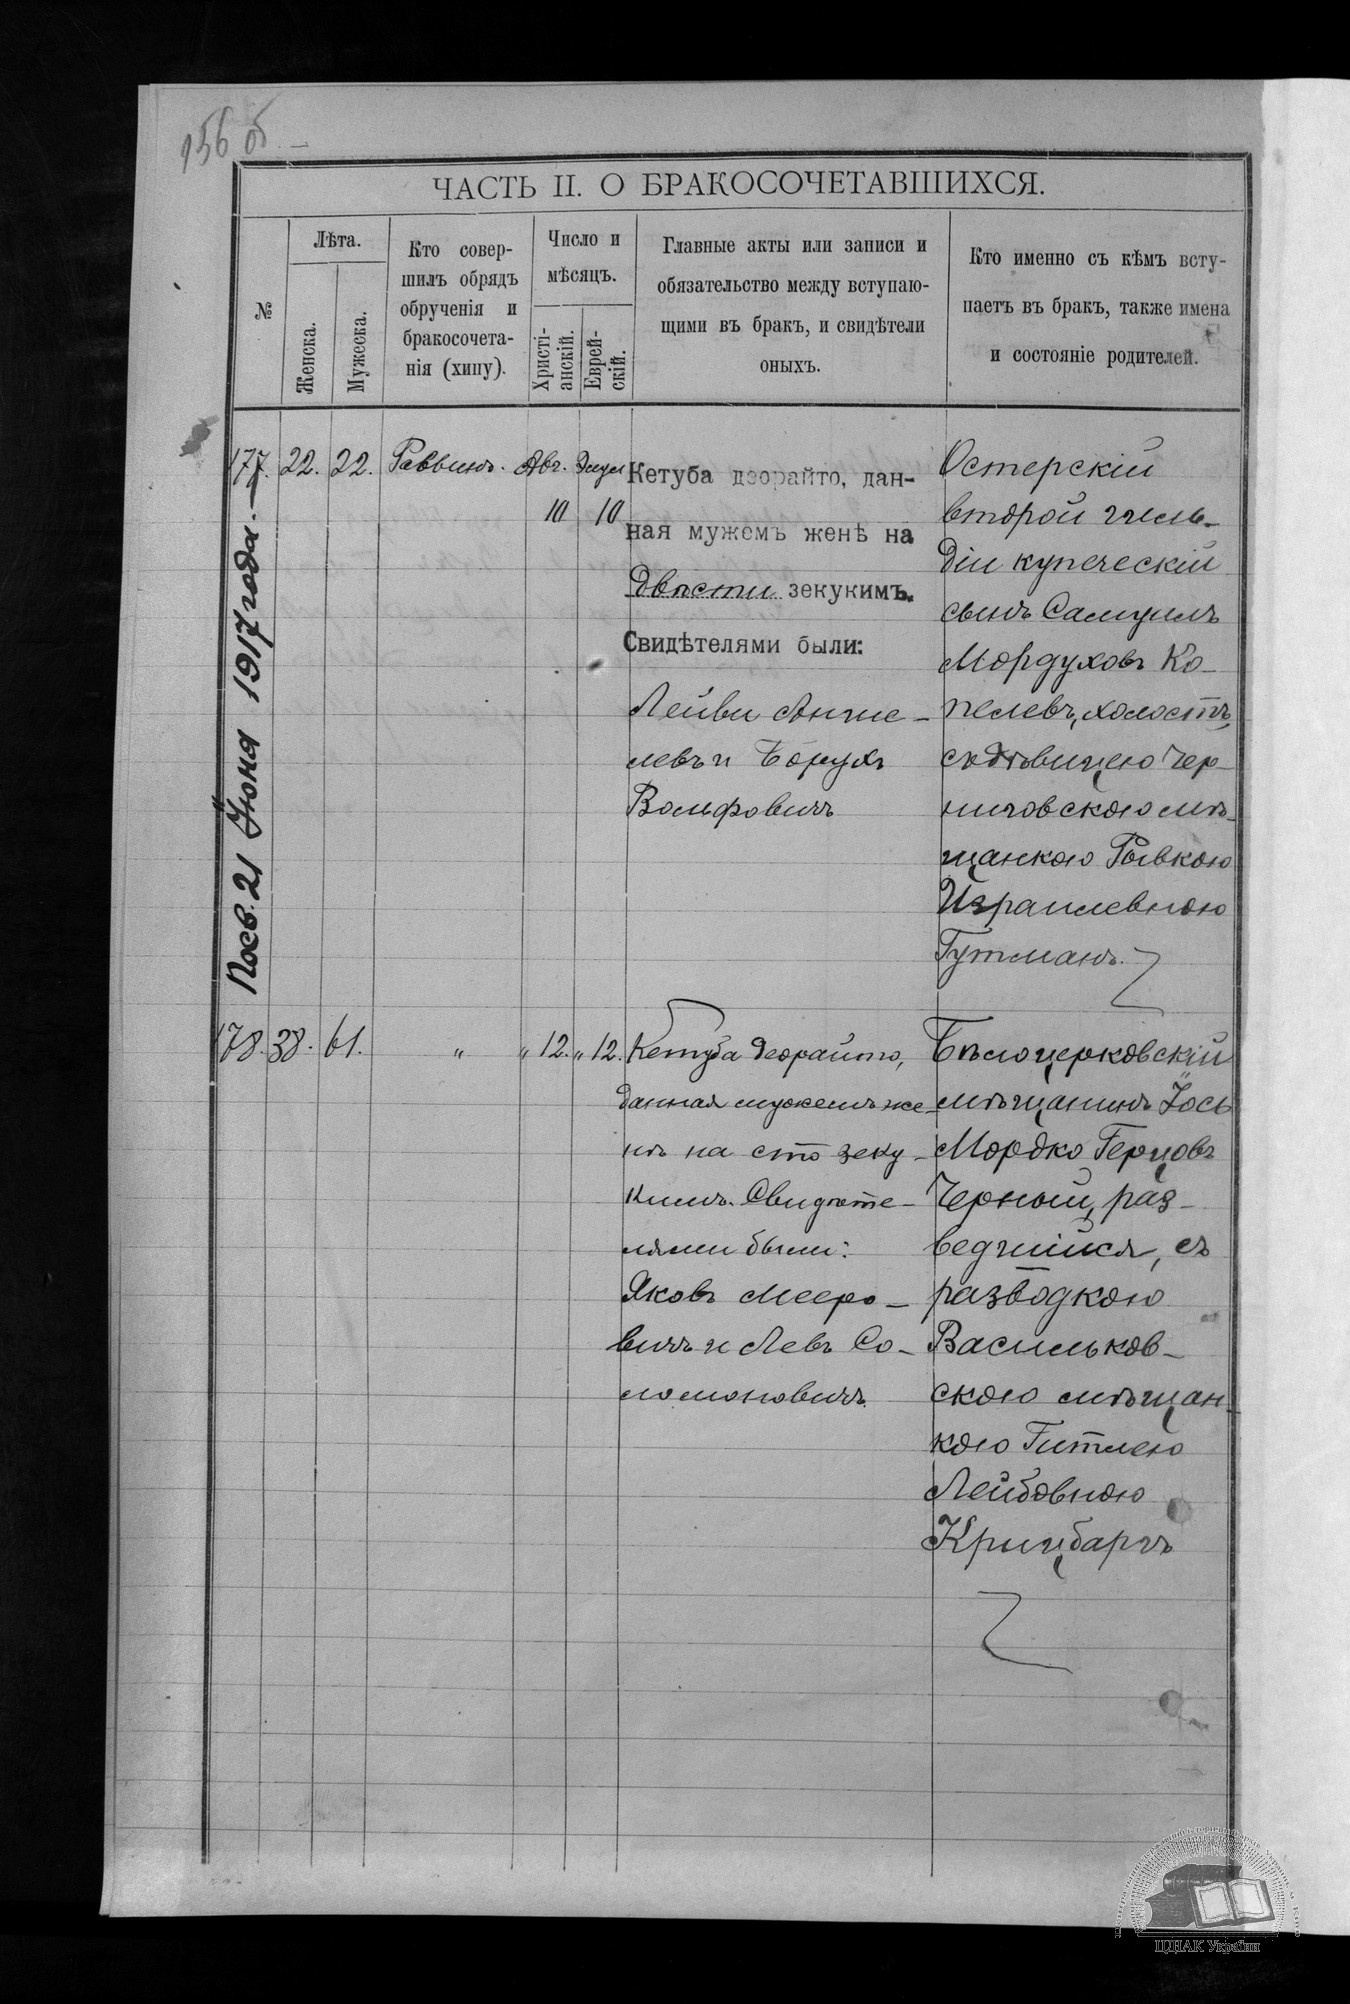 156 об
ЧАСТЬ II. О БРАКОСОЧЕТАВШИХСЯ.
№
Лѣта.
Женска.
Мужеска.
Кто совер-
шилъ обрядъ
обрученія и
бракосочета-
нія (хипу).
Число и
мѣсяцъ.
Христі-
анскій.
Еврей-
скій.
Главные акты или записи и
обязательство между вступаю-
щими въ бракъ, и свидѣтели
оныхъ.
Кто именно съ кѣмъ всту-
паетъ въ бракъ, также имена
и состояніе родителей.
Посв. 21 Іюня 1917 года.
177. 22. 22. Раввинъ. Авг. Элул
10 10
Кетуба дэорайто, дан-
ная мужемъ женѣ на
двѣсти зекукимъ.
Свидѣтелями были:
Лейви Ангие-
левъ и Борухъ
Вольфовичъ
Остерскій
второй гиль-
діи купеческій
сынъ Самуилъ
Мордуховъ Ко-
пелевъ, холостъ,
съ дѣвицею Чер-
ниговскою мѣ-
щанкою Рывкою
Израилевною
Гутманъ.
178. 38. 61. " " 12. " 12.
Кетуба деорайто,
данная мужемъ же-
нѣ на сто зеку-
кимъ. Свидѣте-
лями были:
Яковъ Мееро-
вичъ и Левъ Со-
ломоновичъ
Бѣлоцерковскій
мѣщанинъ Іось
Мордко Герцовъ
Черный, раз-
ведшійся, съ
разводкою
Васильков-
скою мѣщан-
кою Гитлею
Лейбовною
Крицбаргъ
ЦДІАК України